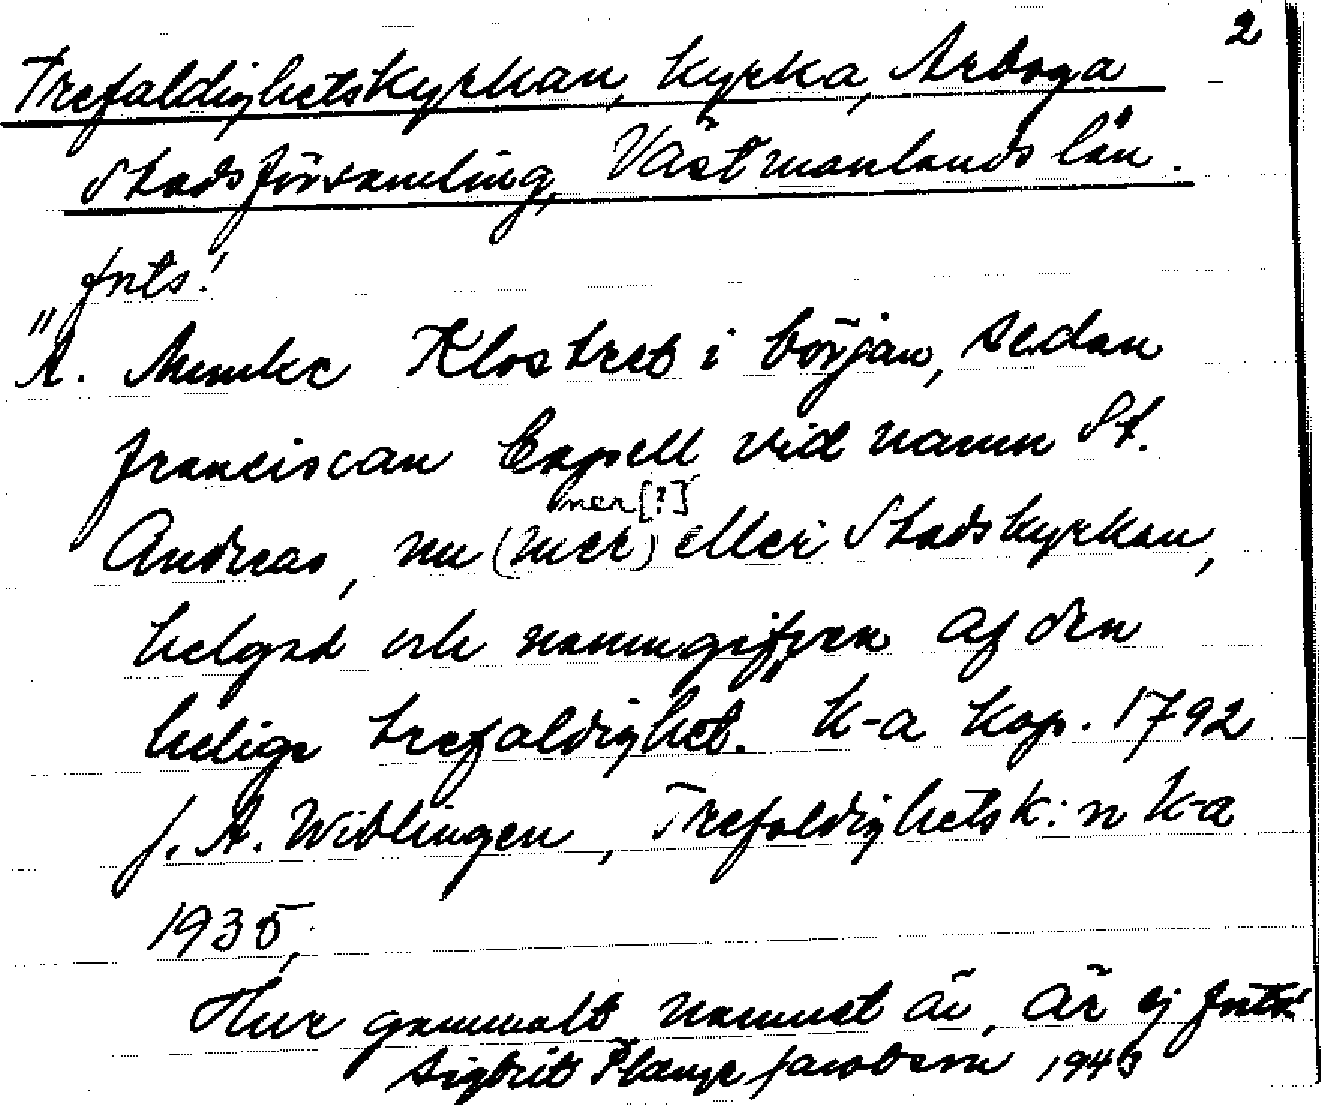 2
Trefaldighetskyrkan, kyrka, Arboga
Stadsförsamling, Västmanlands län.
fnts!
"A. Munke Klostret i början, sedan
franciscan Capell vid namn St.
Andreas, nu (mer) eller Stadskyrkan,
mer [?]
helgad och namngifven af den
helige trefaldighet. K-a kop. 1792
f. A. Wiblingen, Trefaldighetsk:n K-a
1935,
Hur gammalt namnet är, är ej fnts!
Sigbrit Plænge Jacobson 1943